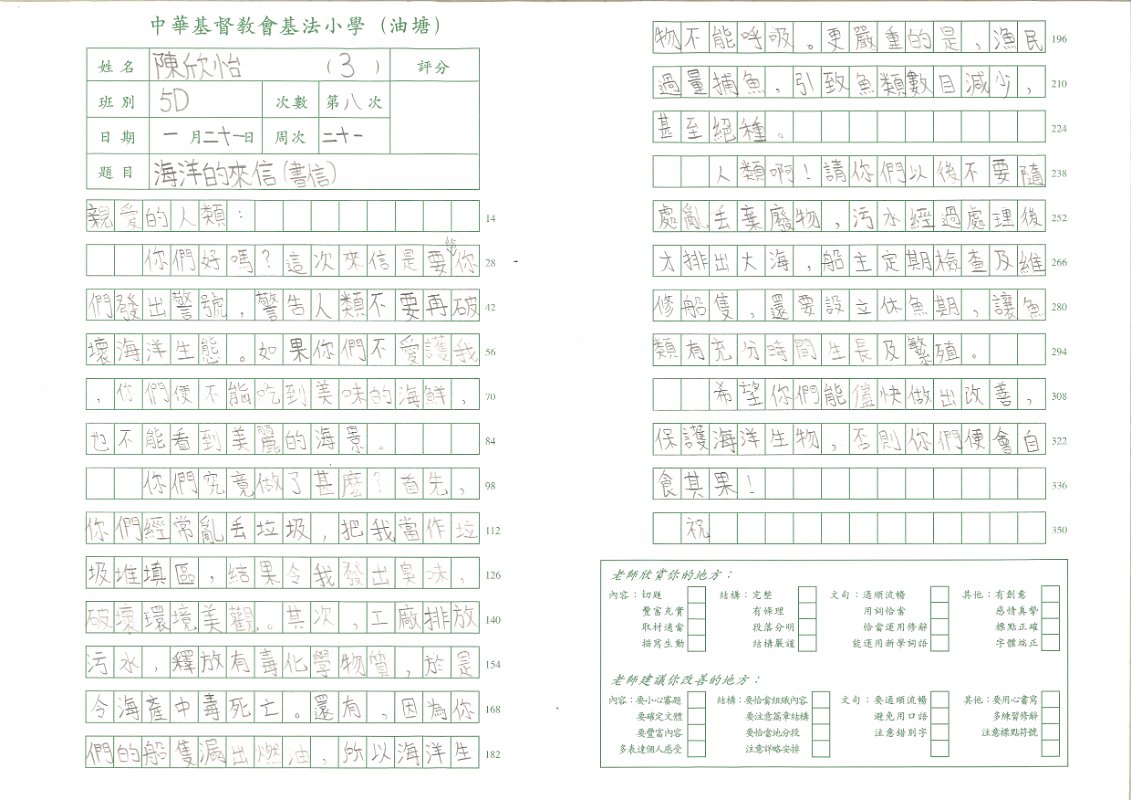 中華基督教會基法小學（油塘）
姓名 陳欣怡 （3） 評分
班別 5D 次數 第八次
日期 一月二十一日 周次 二十一
題目 海洋的來信(書信)
親愛的人類： 14
給
你們好嗎？這次來信是要你 28
們發出警號，警告人類不要再破 42
壞海洋生態。如果你們不愛護我 56
，你們便不能吃到美味的海鮮， 70
也不能看到美麗的海景。 84
你們究竟做了甚麼？首先， 98
你們經常亂丟垃圾，把我當作垃 112
圾堆填區，結果令我發出臭味， 126
破壞環境美觀。其次，工廠排放 140
污水，釋放有毒化學物質，於是 154
令海產中毒死亡。還有，因為你 168
們的船隻漏出燃油，所以海洋生 182
物不能呼吸。更嚴重的是，漁民 196
過量捕魚，引致魚類數目減少， 210
甚至絕種。 224
人類啊！請你們以後不要隨 238
處亂丟棄廢物，污水經過處理後 252
才排出大海，船主定期檢查及維 266
修船隻，還要設立休魚期，讓魚 280
類有充分時間生長及繁殖。 294
希望你們能儘快做出改善， 308
保護海洋生物，否則你們便會自 322
食其果！ 336
祝 350
老師欣賞你的地方：
內容：切題 結構：完整 文句：通順流暢 其他：有創意
豐富充實 有條理 用詞恰當 感情真摯
取材適當 段落分明 恰當運用修辭 標點正確
描寫生動 結構嚴謹 能運用新學詞語 字體端正
老師建議你改善的地方：
內容：要小心審題 結構：要恰當組織內容 文句：要通順流暢 其他：要用心書寫
要確定文體 要注意篇章結構 避免用口語 多練習修辭
要豐富內容 要恰當地分段 注意錯別字 注意標點符號
多表達個人感受 注意詳略安排